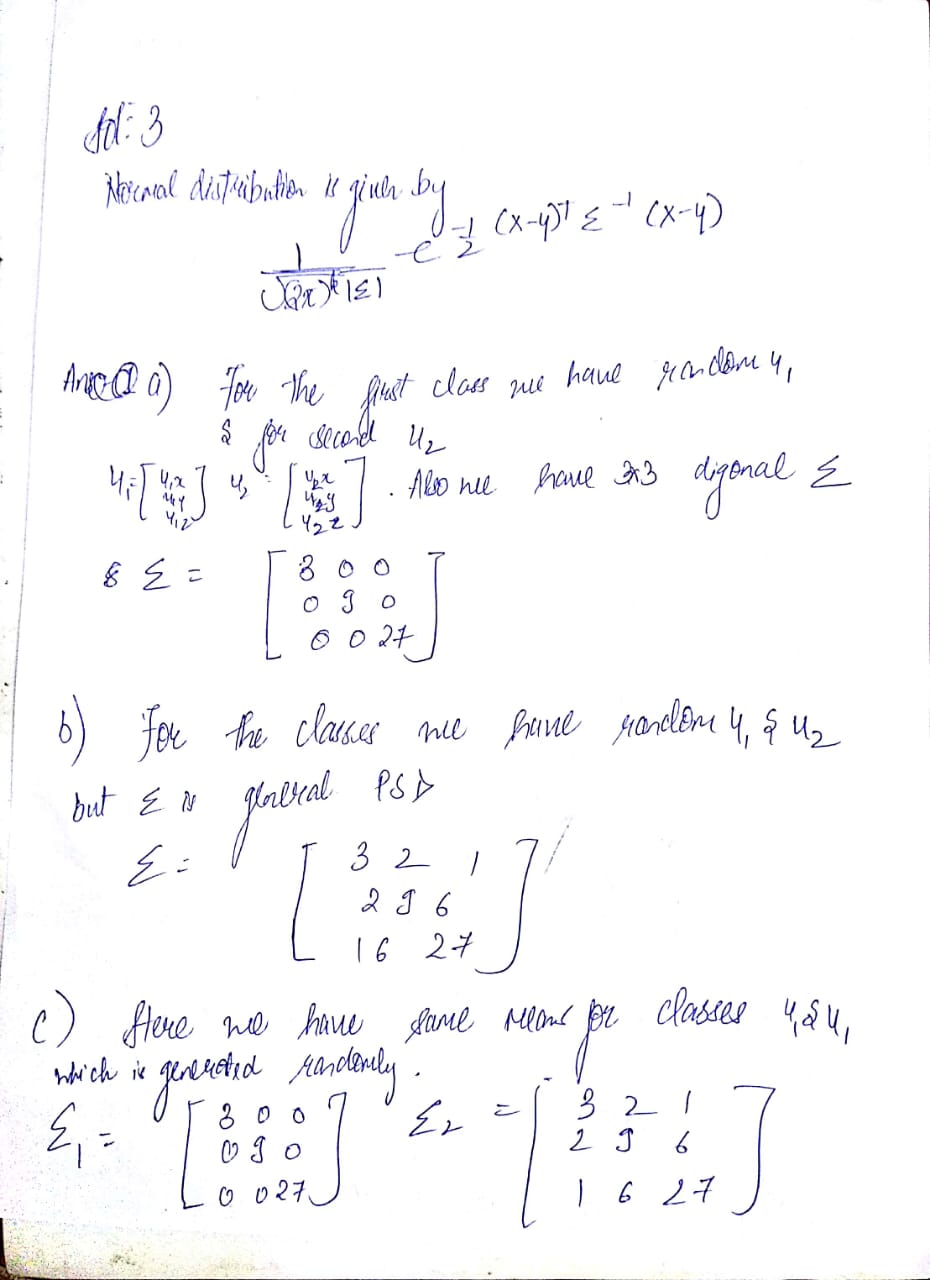 Sol: 3
Normal distribution is given by
1 / √(2π)^k |Σ| e^ -1/2 (x-μ)^T Σ^-1 (x-μ)
a) For the first class we have random μ1
& for second μ2
μ1 = [ μ1x μ1y μ1z ] μ2 = [ μ2x μ2y μ2z ] . Also we have 3x3 digonal Σ
& Σ = [ 3 0 0
0 9 0
0 0 27 ]
b) For the classes we have random μ1 & μ2
but Σ is general PSD
Σ = [ 3 2 1
2 9 6
1 6 27 ]
c) Here we have same means for classes μ1 & μ1
which is generated randomly.
Σ1 = [ 3 0 0
0 9 0
0 0 27 ] Σ2 = [ 3 2 1
2 9 6
1 6 27 ]